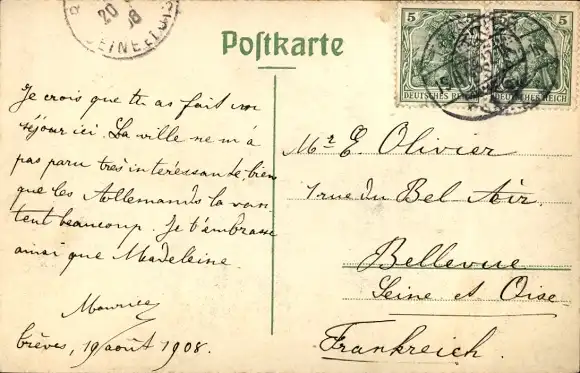 20
8
SEINE ET OISE
Postkarte
5 5
DEUTSCHES REICH DEUTSCHES REICH
Je crois que tu as fait un
séjour ici. La ville ne m'a
pas paru très intéressante, bien
que les Allemands la van
tent beaucoup. Je t'embrasse
ainsi que Madeleine.
Maurice
Trèves, 19 août 1908.
Mr E. Olivier
1 rue du Bel Air.
Bellevue
Seine et Oise
Frankreich.